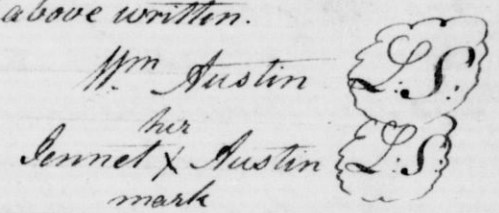 above written.
Wm Austin L.S.
her
Jennet X Austin L.S.
mark